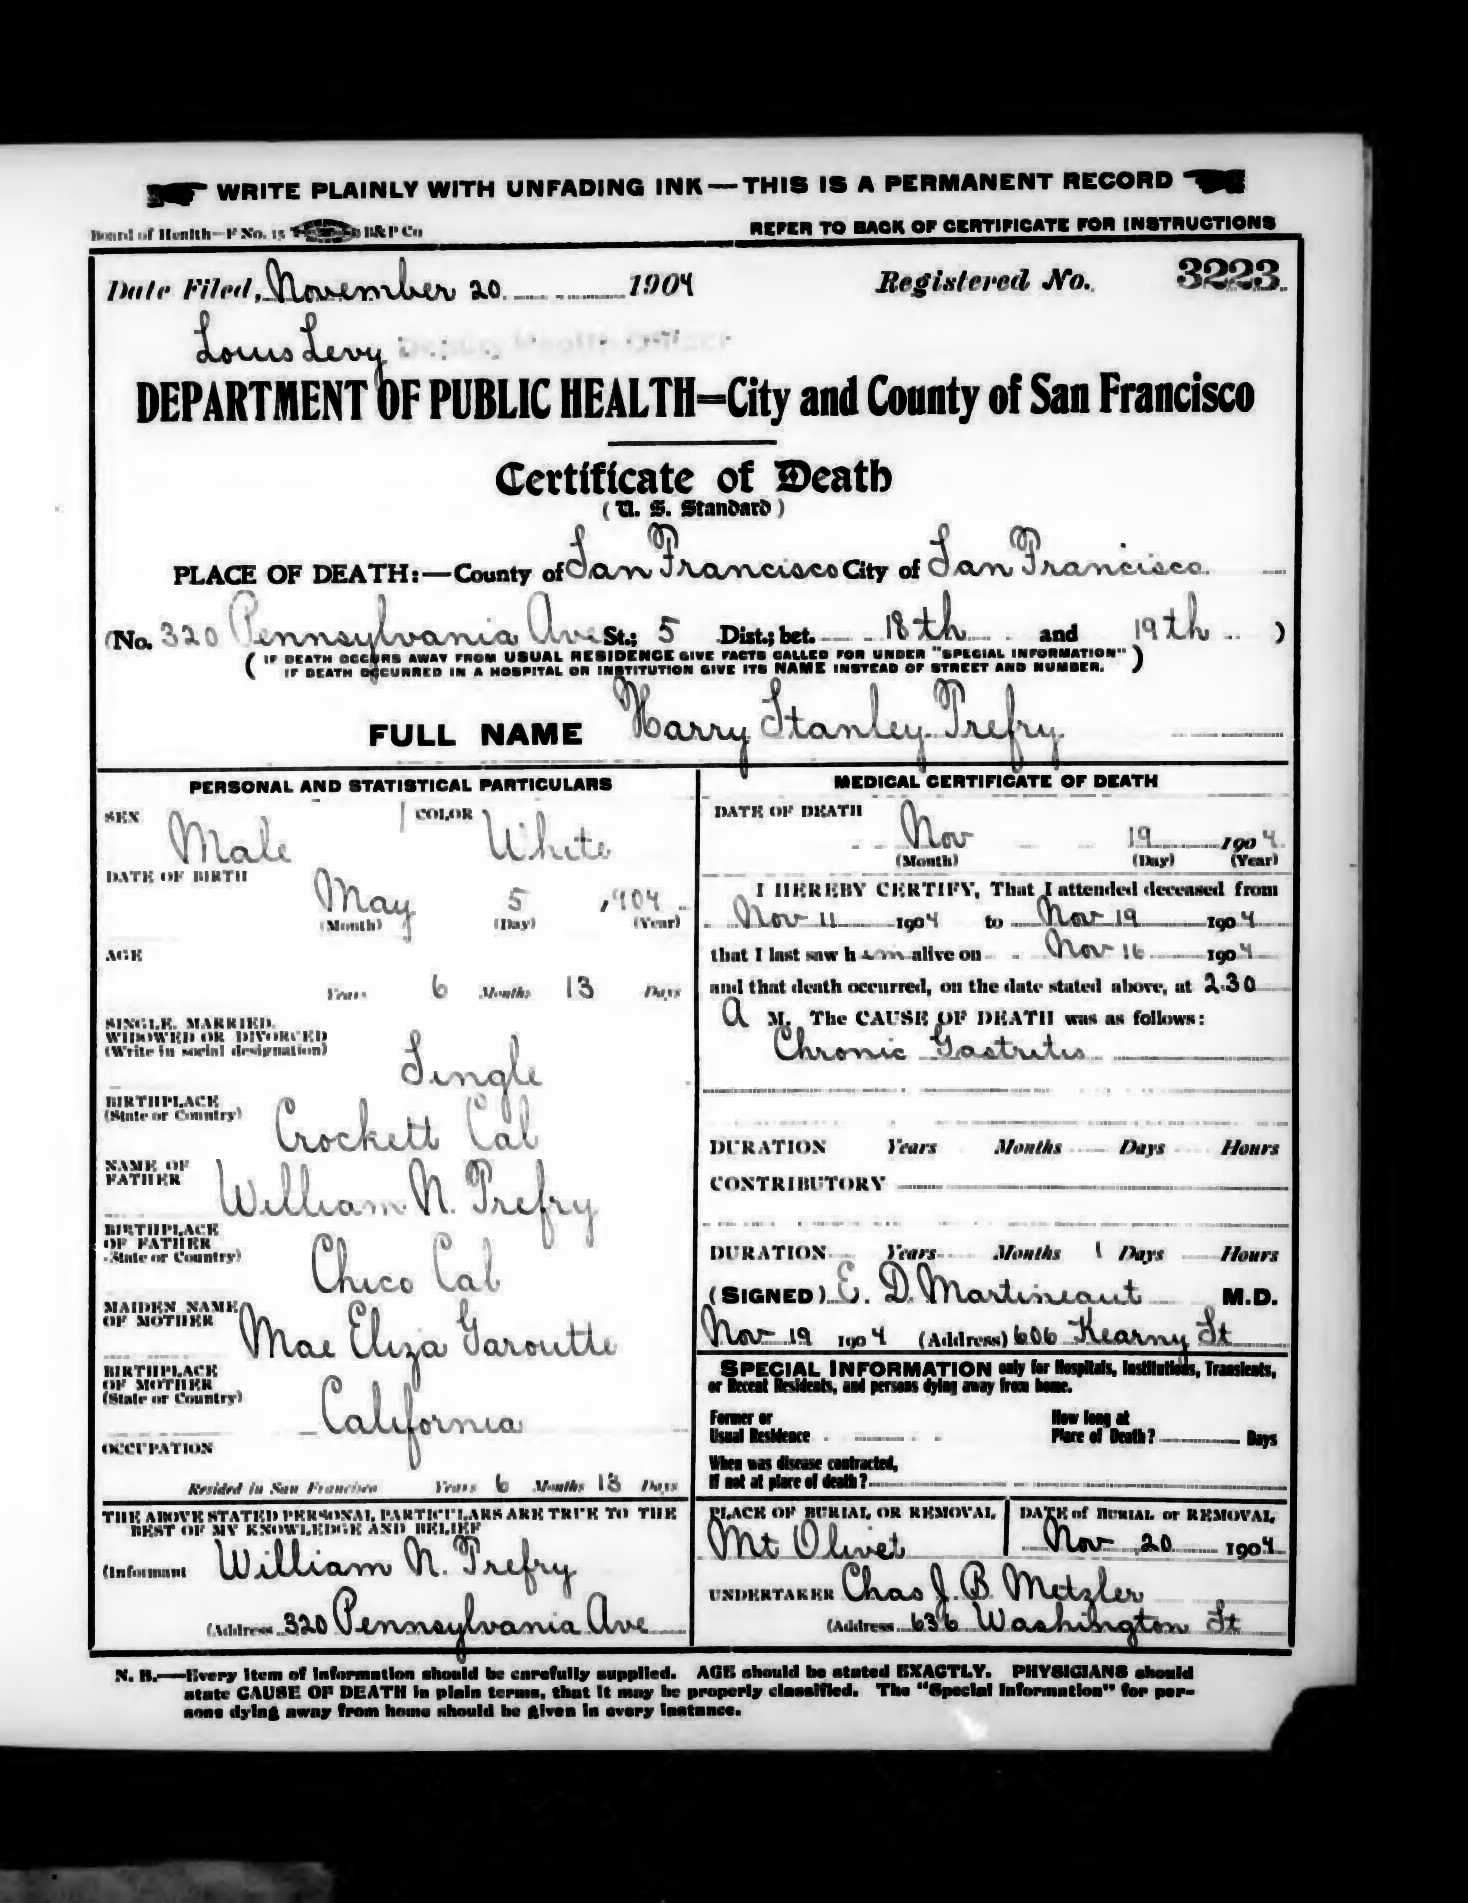 WRITE PLAINLY WITH UNFADING INK—THIS IS A PERMANENT RECORD
Board of Health—F No. 15 B&P Co
REFER TO BACK OF CERTIFICATE FOR INSTRUCTIONS
Date Filed, November 20 1904 Registered No. 3223
Louis Levy Deputy Health Officer
DEPARTMENT OF PUBLIC HEALTH—City and County of San Francisco
Certificate of Death
(U. S. Standard)
PLACE OF DEATH:—County of San Francisco City of San Francisco
(No. 320 Pennsylvania Ave St.; 5 Dist.; bet. 18th and 19th )
( IF DEATH OCCURS AWAY FROM USUAL RESIDENCE GIVE FACTS CALLED FOR UNDER "SPECIAL INFORMATION" )
IF DEATH OCCURRED IN A HOSPITAL OR INSTITUTION GIVE ITS NAME INSTEAD OF STREET AND NUMBER.
FULL NAME Harry Stanley Trefry
PERSONAL AND STATISTICAL PARTICULARS
SEX Male COLOR White
DATE OF BIRTH May 5 ,904
(Month) (Day) (Year)
AGE
Years 6 Months 13 Days
SINGLE, MARRIED,
WIDOWED OR DIVORCED
(Write in social designation) Single
BIRTHPLACE
(State or Country) Crockett Cal
NAME OF
FATHER William N. Trefry
BIRTHPLACE
OF FATHER
(State or Country) Chico Cal
MAIDEN NAME
OF MOTHER Mae Eliza Garoutte
BIRTHPLACE
OF MOTHER
(State or Country) California
OCCUPATION
Resided in San Francisco Years 6 Months 13 Days
THE ABOVE STATED PERSONAL PARTICULARS ARE TRUE TO THE
BEST OF MY KNOWLEDGE AND BELIEF
(Informant William N. Trefry
(Address 320 Pennsylvania Ave
MEDICAL CERTIFICATE OF DEATH
DATE OF DEATH
Nov 19 1904
(Month) (Day) (Year)
I HEREBY CERTIFY, That I attended deceased from
Nov 11 1904 to Nov 19 1904
that I last saw him alive on Nov 16 1904
and that death occurred, on the date stated above, at 2.30
A M. The CAUSE OF DEATH was as follows:
Chronic Gastritis
DURATION Years Months Days Hours
CONTRIBUTORY
DURATION Years Months 1 Days Hours
(SIGNED) E. D. Martineaut M.D.
Nov 19 1904 (Address) 606 Kearny St
SPECIAL INFORMATION only for Hospitals, Institutions, Transients,
or Recent Residents, and persons dying away from home.
Former or
Usual Residence
How long at
Place of Death? Days
When was disease contracted,
If not at place of death?
PLACE OF BURIAL OR REMOVAL
Mt Olivet
DATE of BURIAL or REMOVAL
Nov 20 1904
UNDERTAKER Chas J. B. Metzler
(Address 636 Washington St
N. B.—Every item of information should be carefully supplied. AGE should be stated EXACTLY. PHYSICIANS should
state CAUSE OF DEATH in plain terms, that it may be properly classified. The "Special Information" for per-
sons dying away from home should be given in every instance.